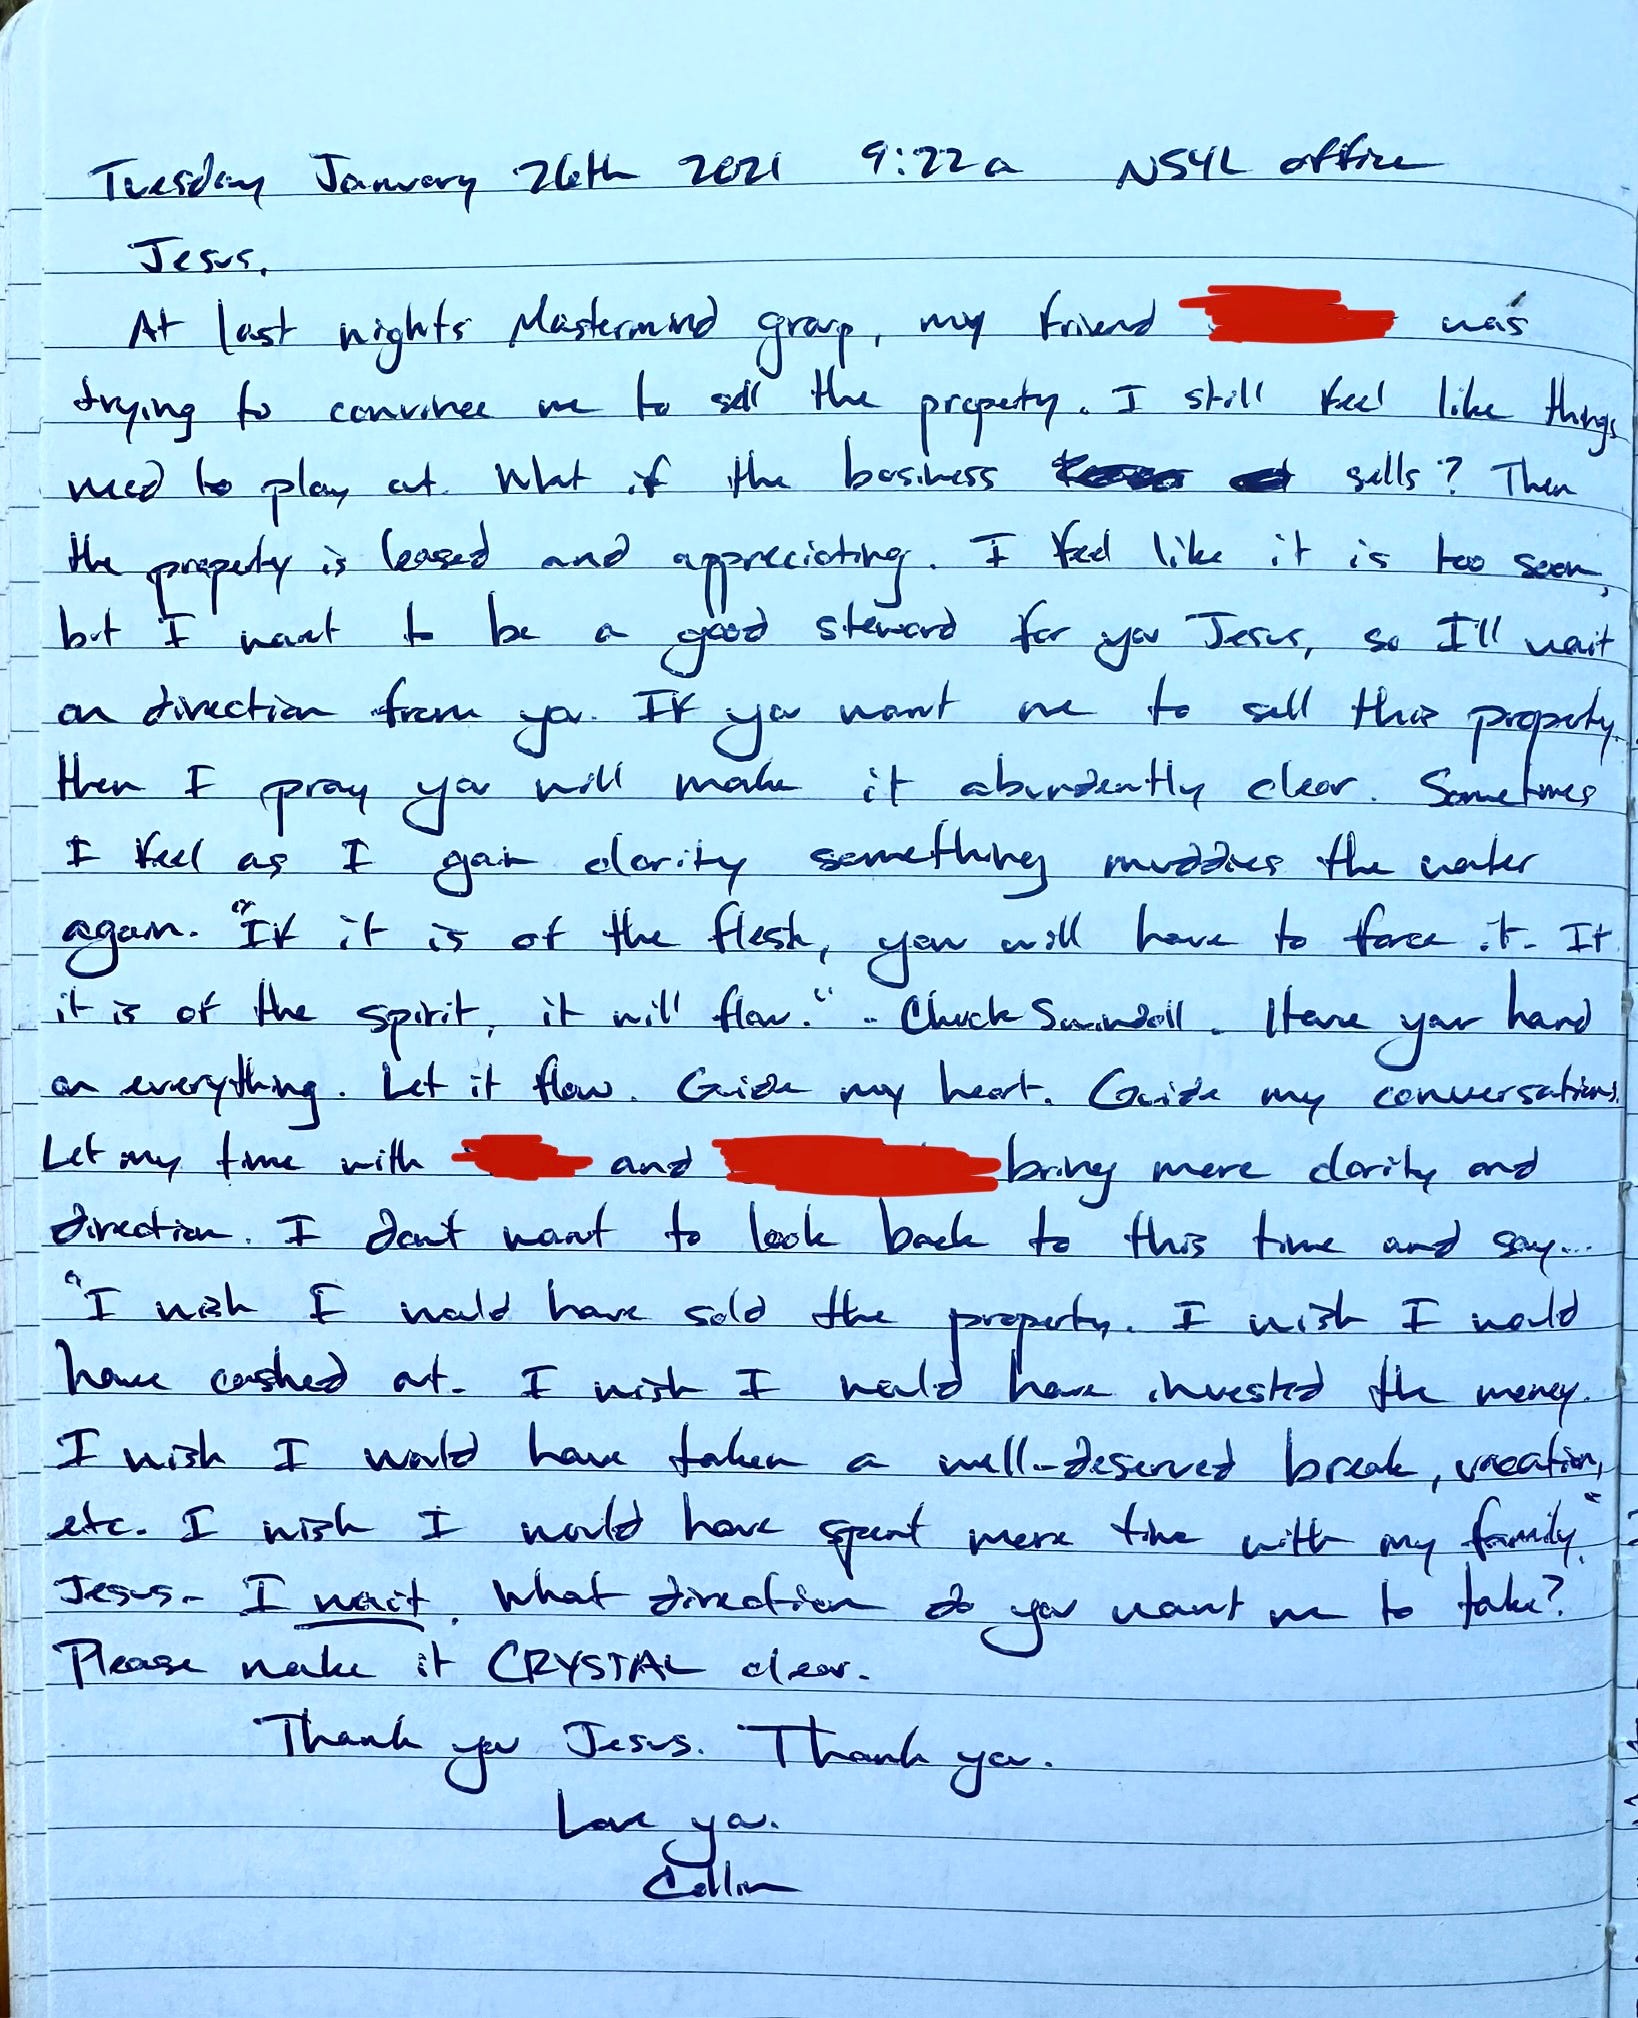 Tuesday January 26th 2021 9:22a NSYL office
Jesus,
At last nights Mastermind group, my friend was
trying to convince me to sell the property. I still feel like things
need to play out. What if the business sells? Then
the property is leased and appreciating. I feel like it is too soon,
but I want to be a good steward for you Jesus, so I'll wait
on direction from you. If you want me to sell this property,
then I pray you will make it abundently clear. Sometimes
I feel as I gain clarity something muddies the water
again. "If it is of the flesh, you will have to force it. If
it is of the spirit, it will flow." - Chuck Swindoll. Have your hand
on everything. Let it flow. Guide my heart. Guide my conversations.
Let my time with and bring more clarity and
direction. I dont want to look back to this time and say...
"I wish I would have sold the property. I wish I would
have cashed out. I wish I would have invested the money.
I wish I would have taken a well-deserved break, vacation,
etc. I wish I would have spent more time with my family."
Jesus- I wait. What direction do you want me to take?
Please make it CRYSTAL clear.
Thank you Jesus. Thank you.
Love you.
Collin